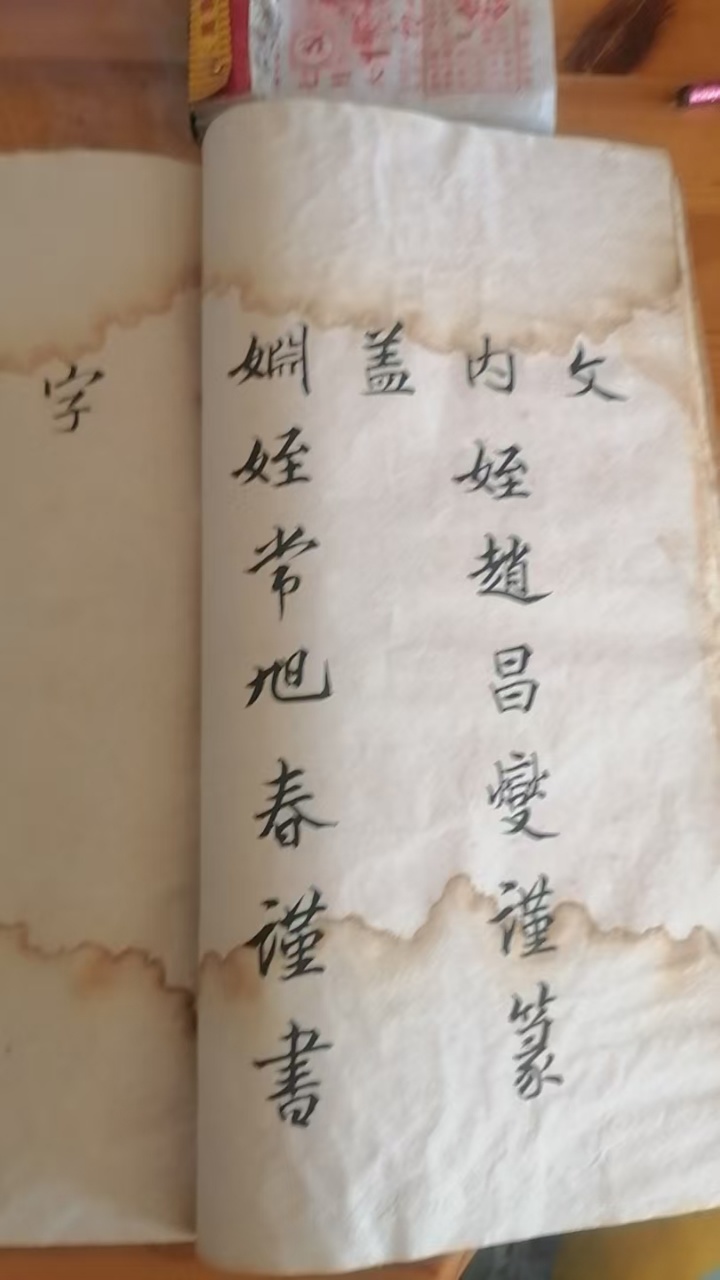 文
内姪趙昌燮謹篆
盖
婣姪常旭春謹書
字